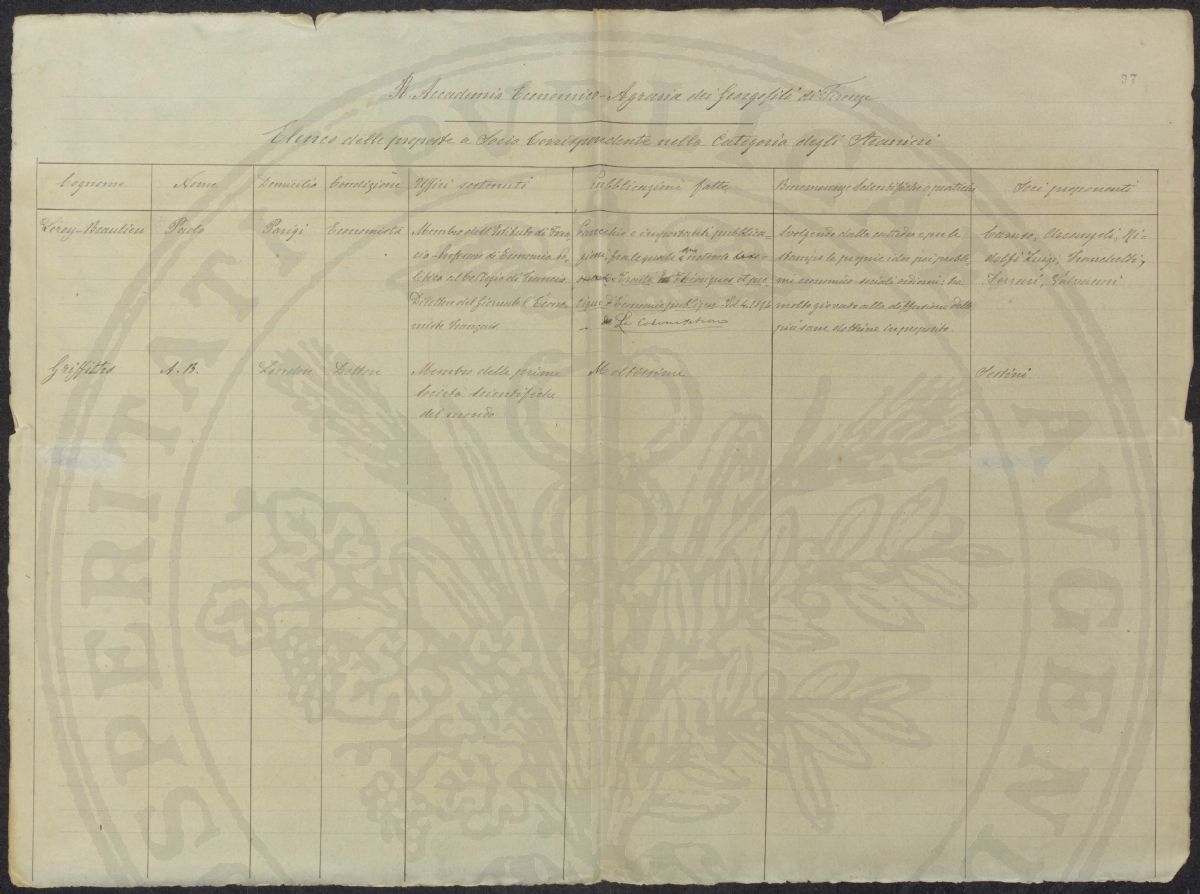 97
R. Accademia Economico-Agraria dei Georgofili di Firenze
Elenco delle proposte a Socio Corrispondente nella Categoria degli Stranieri
Cognome Nome Domicilio Condizione Uffici sostenuti Pubblicazioni fatte Benemerenze Scientifiche o pratiche Soci proponenti
Leroy-Beaulieu Paolo Parigi Economista
Membro dell'Istituto di Fran-
cia Professore di Economia po-
litica al Collegio di Francia
Direttore del Giornale l'Econo-
miste français
Parecchie e importanti pubblica-
zioni, fra le quali è notevole
Traité théorique et pra-
tique d'Economie politique Vol. 4. 1896
La Colonisation
Svolgendo dalla cattedra e per le
stampe le proprie idee poi proble-
mi economico-sociali odierni, ha
molto giovato alla diffusione delle
più sane dottrine in proposito.
Caruso, Arcangeli, Ri-
dolfi Luigi, Franchetti,
Ferrari, Salvatori
Griffiths A. B. Londra Dottore
Membro delle prime
società scientifiche
del mondo
Moltissime
Sestini
PERITATI PVBLICA AVGEN